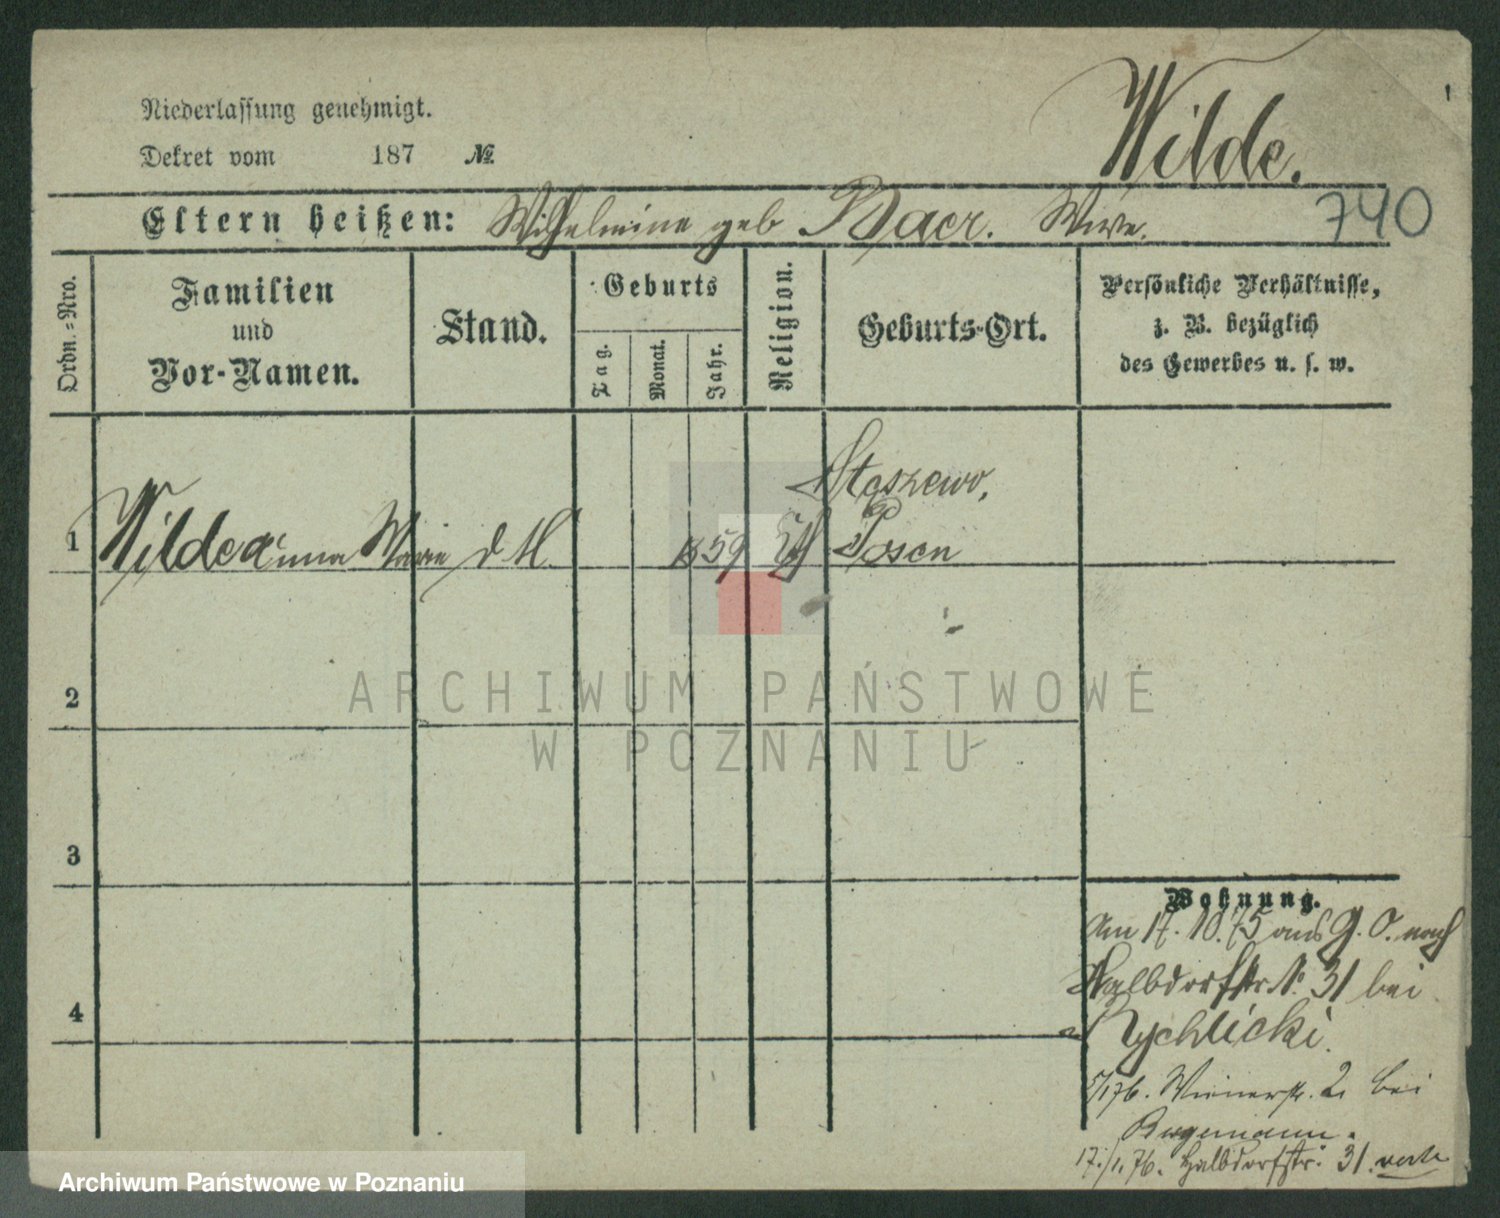 Wilde.
Niederlassung genehmigt.
Dekret vom 187 №
740
Eltern heißen: Wilhelmine geb Baer. Wwe.
Ordn.=Nro.
Familien
und
Vor-Namen.
Stand.
Geburts
Tag.
Monat.
Jahr.
Religion.
Geburts-Ort.
Persönliche Verhältnisse,
z. B. bezüglich
des Gewerbes u. s. w.
1 Wilde Anna Marie d M. 1859 Staszewo, Posen
2
ARCHIWUM PAŃSTWOWE
W POZNANIU
3
4
Wohnung.
Am 17. 10. 75 aus G. O. nach
Halbdorfstr. N. 31 bei
Rychlicki.
5/1 76. Wienerstr. 2 bei
17./1. 76. Halbdorfstr. 31. verte
Archiwum Państwowe w Poznaniu